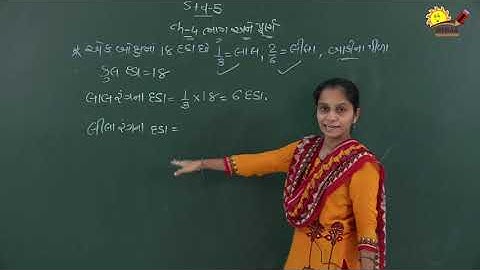 ધો-5
ch-4 ભાગ અને પૂર્ણ
* એક બોક્ષમાં 18 દડા છે 1/3 = લાલ, 2/6 = લીલા, બાકીના પીળા
કુલ દડા = 18
લાલ રંગના દડા = 1/3 × 18 = 6 દડા.
લીલા રંગના દડા =